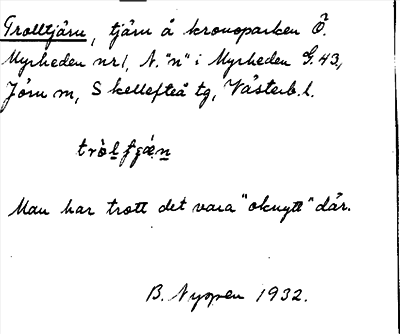 Trolltjärn, tjärn å kronoparken Ö.
Myrheden nr 1, N. "n" i Myrheden G.43,
Jörn sn, Skellefteå tg, Västerb. l.
Man har trott det vara "oknytt" där.
B. Nyman 1932.